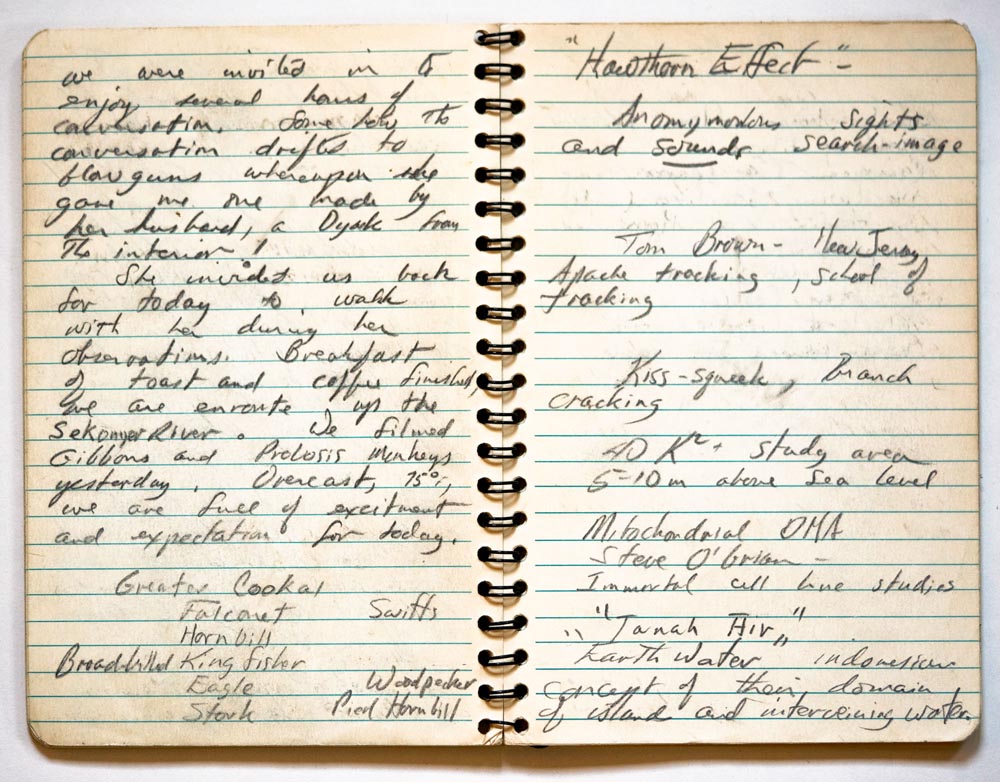 we were invited in to
enjoy several hours of
conversation. Some how the
conversation drifts to
blow guns whereupon she
gave me one made by
her husband, a Dyak from
the interior!
She invided us back
for today to walk
with her during her
observations. Breakfast
of toast and coffee finished,
we are enroute up the
Sekonyer River. We filmed
Gibbons and Probosis Monkeys
yesterday. Overcast, 75°,
we are full of excitment
and expectation for today.
Greater Cookal
Falconet Swifts
Hornbill
Broad-billed King fisher
Eagle Woodpecker
Stork Pied Hornbill
"Hawthorn Effect" -
sights
and sounds search-image
Tom Brown - New Jersey
Apache tracking, school of
tracking
Kiss-squeek, Branch
cracking
40 K² study area
5-10 m above sea level
Mitochondrial DNA
Steve O'Brian -
Immortal cell line studies
"Tanah Air"
"Earth Water" indonesian
concept of their domain
of island and interceining water.